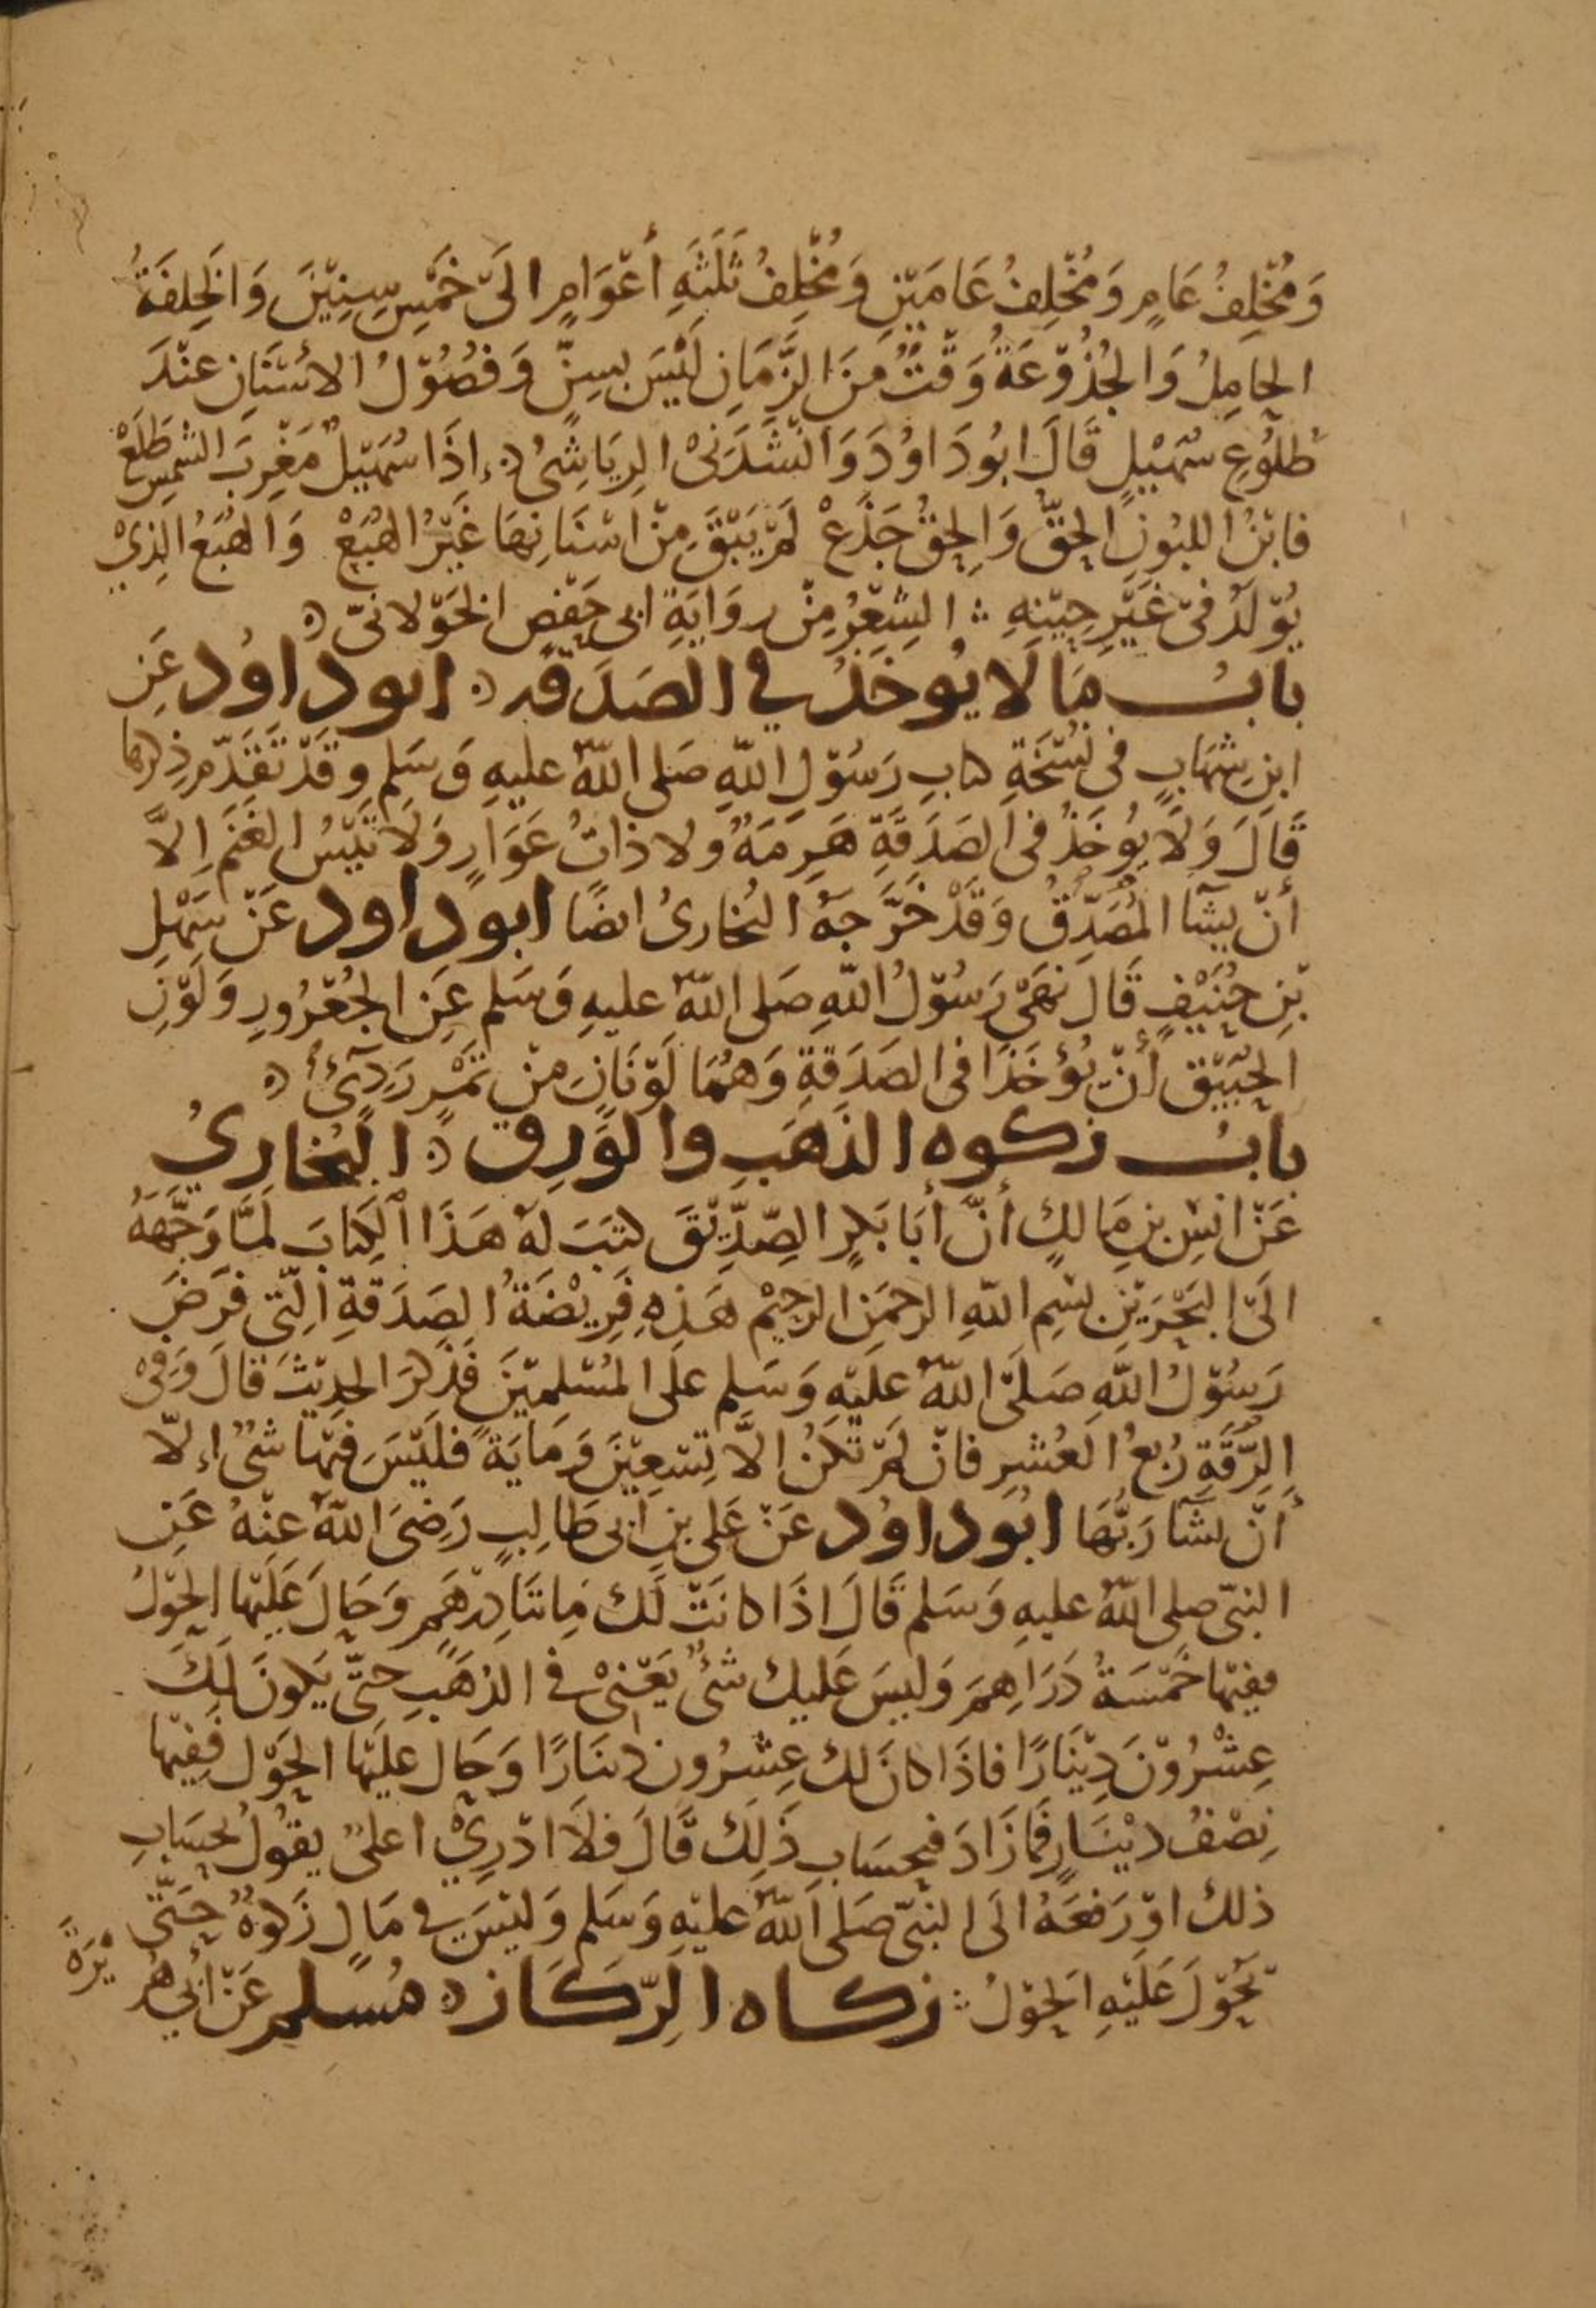 وَمُخْلِفُ عَامٍ وَمُخْلِفُ عَامَيْنِ وَمُخْلِفُ ثَلَثَةِ أَعْوَامٍ الَىَ خَمْسِ سِنِيْنَ وَالخَلِفَةُ
الحامِلُ وَالجُذُوْعَةُ وَقْتٌ مِنَ الزَّمَانِ لَيْسَ بسِنٍّ وَفصُوْلُ الاسْنَانِ عنْدَ
طُلُوْعِ سُهَيْلٍ قَالَ ابُودَاوُدَ وَانْشَدَنىْ الرِيَاشِىُ اذَا سُهَيْلٌ مَغْرِبَ الشمسِ طَلَعْ
فابْنُ اللبُونِ الحِقُّ وَالحِقُّ جَذَعْ لَمْ يَبْقَ مِنْ اسْنَانِهَا غَيْرُ الهُبَعْ وَالهُبَعُ الذِيْ
يُوْلَدُ فىْ غَيْرِ حِيْنِهِ ؞ الشِعْرُ مِنْ روَايَةِ ابى حَفْصٍ الخَوْلانىّ
بابُ مَا لَا يُوخَذُ في الصَدَقَه ابوداوُد عَنِ
ابنِ شِهَابٍ فى نُسْخَةِ كتابِ رَسُوْلِ اللهِ صَلى اللهُ عليهِ وَسَلم وقَدْ تَقَدّمَ ذِكرها
قَالَ وَلَا يُوخَذُ فى الصَدَقَةِ هَرِمَةٌ ولا ذاتُ عَوَارٍ وَلَا تَيْسُ الغَنَمِ اِلَّا
أنْ يشَآ المُصَدِّقُ وَقَدْ خَرَّجَهُ البُخارىُ ايضًا ابوداود عَنْ سَهْلِ
بْنِ حُنَيْفٍ قَالَ نهَىَ رَسُوْلُ اللهِ صَلى اللهُ عليهِ وَسَلم عَنِ الجُعْرُورِ وَلَوْنِ
الحُبَيْقِ أنْ يُؤخَذَا فى الصَدَقَةِ وَهُمَا لَوْنَانِ مِنْ تَمْرٍ رَدِىءٍ
بابُ زكوه الذهَب والوَرِق البُخارِيُ
عَنْ انَسِ بنِ مَالكٍ أنَّ أبَا بَكرٍ الصِدِّيْقَ كتَبَ لَهُ هَذَا الكِتَابَ لَمَّا وَجَّهَهُ
الَى البَحْرَيْنِ بسْمِ اللهِ الرحمَنِ الرحِيْم هَذِهِ فَرِيْضَةُ الصَدَقَةِ الَّتِى فرَضَ
رَسُوْلُ اللهِ صَلَى اللهُ عليْهِ وَسَلم علَى المُسْلِميْنَ فَذَكرَ الحدِيْثَ قالَ وَفىْ
الرِّقَةِ رُبعُ العُشرِ فانْ لَمْ تَكُنْ الاَّ تِسْعِيْنَ وَمَايَةً فلَيْسَ فيْهَا شىٌ اِلّا
أنْ يشَآ رَبُّهَا ابُوداوُد عَنْ عَلى بنِ ابى طَالِبٍ رَضىَ اللهُ عنْهُ عَنِ
النبىّ صلى اللهُ عليهِ وَسَلم قَالَ اذَا كانَتْ لَك مِائتَا دِرْهَمٍ وَحَالَ عَلَيْها الحَوْلُ
ففيْها خَمْسَةُ دَرَاهِمَ وَليسَ عَليك شىٌ يَعْنىْ في الذهَبِ حتىّ يَكونَ لَكَ
عِشْرُوْنَ دِيْنَارًا فاذَا كانَ لك عِشرُون دِينَارًا وَحَالَ علَيْها الحَوْل فَفِيْها
نِصْفُ ديْنَارٍ فَمَا زَادَ فبحسَابِ ذَلِك قَالَ فلَا ادْرِيْ اعلىٌ يقُوْلُ بحسَابِ
ذلك اوْ رَفعَهُ الَى النبىّ صَلى اللهُ عليْهِ وَسَلم وَليْسَ فى مَالٍ زَكوةٌ حَتَّى
يَحُوْلَ عَلَيْهِ الحَوْلُ ؞ زكاه الرِّكَاز مُسلم عَنْ أبي هُرَيْرَةَ